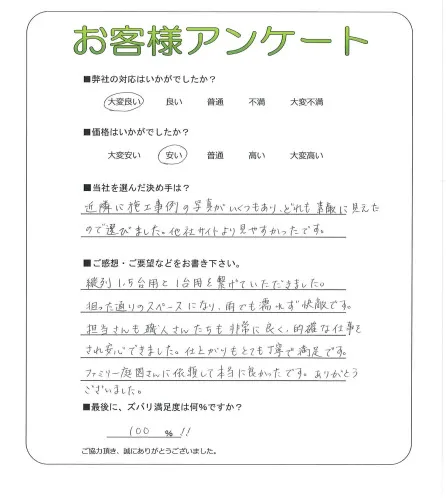 お客様アンケート
■弊社の対応はいかがでしたか？
大変良い 良い 普通 不満 大変不満
■価格はいかがでしたか？
大変安い 安い 普通 高い 大変高い
■当社を選んだ決め手は？
近隣に施工事例の写真がいくつもあり、どれも素敵に見えた
ので選びました。他社サイトより見やすかったです。
■ご感想・ご要望などをお書き下さい。
縦列1.5台用と1台用を繋げていただきました。
狙った通りのスペースになり、雨でも濡れず快敵です。
担当さんも職人さんたちも非常に良く、的確な仕事を
され安心できました。仕上がりもとても丁寧で満足です。
ファミリー庭園さんに依頼して本当に良かったです。ありがとう
ございました。
■最後に、ズバリ満足度は何％ですか？
100 ％!!
ご協力頂き、誠にありがとうございました。